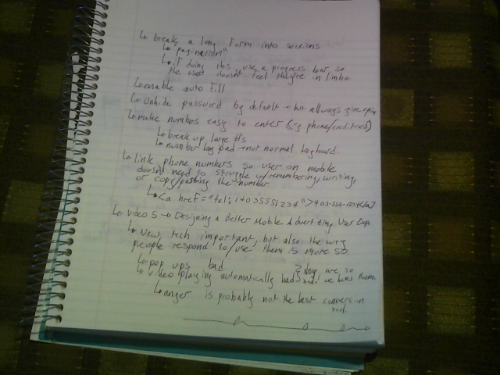 ↳ break a long form into sections
↳ "pagination"
↳ if doing this, use a progress bar, so
the user doesn't feel they're in limbo
↳ enable auto fill
↳ unhide password by default → but always give option
↳ make numbers easy to enter (e.g. phone/credit card)
↳ break up large #s
↳ number key pad → not normal keyboard
↳ link phone numbers so user on mobile
doesn't need to struggle w/ remembering, writing,
or copy/pasting the number
↳ <a href="tel:
↳ Video 5 → Designing a Better Mobile Advertising User Exp
↳ new tech important, but also the way
people respond to/use them is more so
↳ pop ups bad
↳ video playing automatically bad
they are, so
we hate them
↳ anger is probably not the best conversion
tool